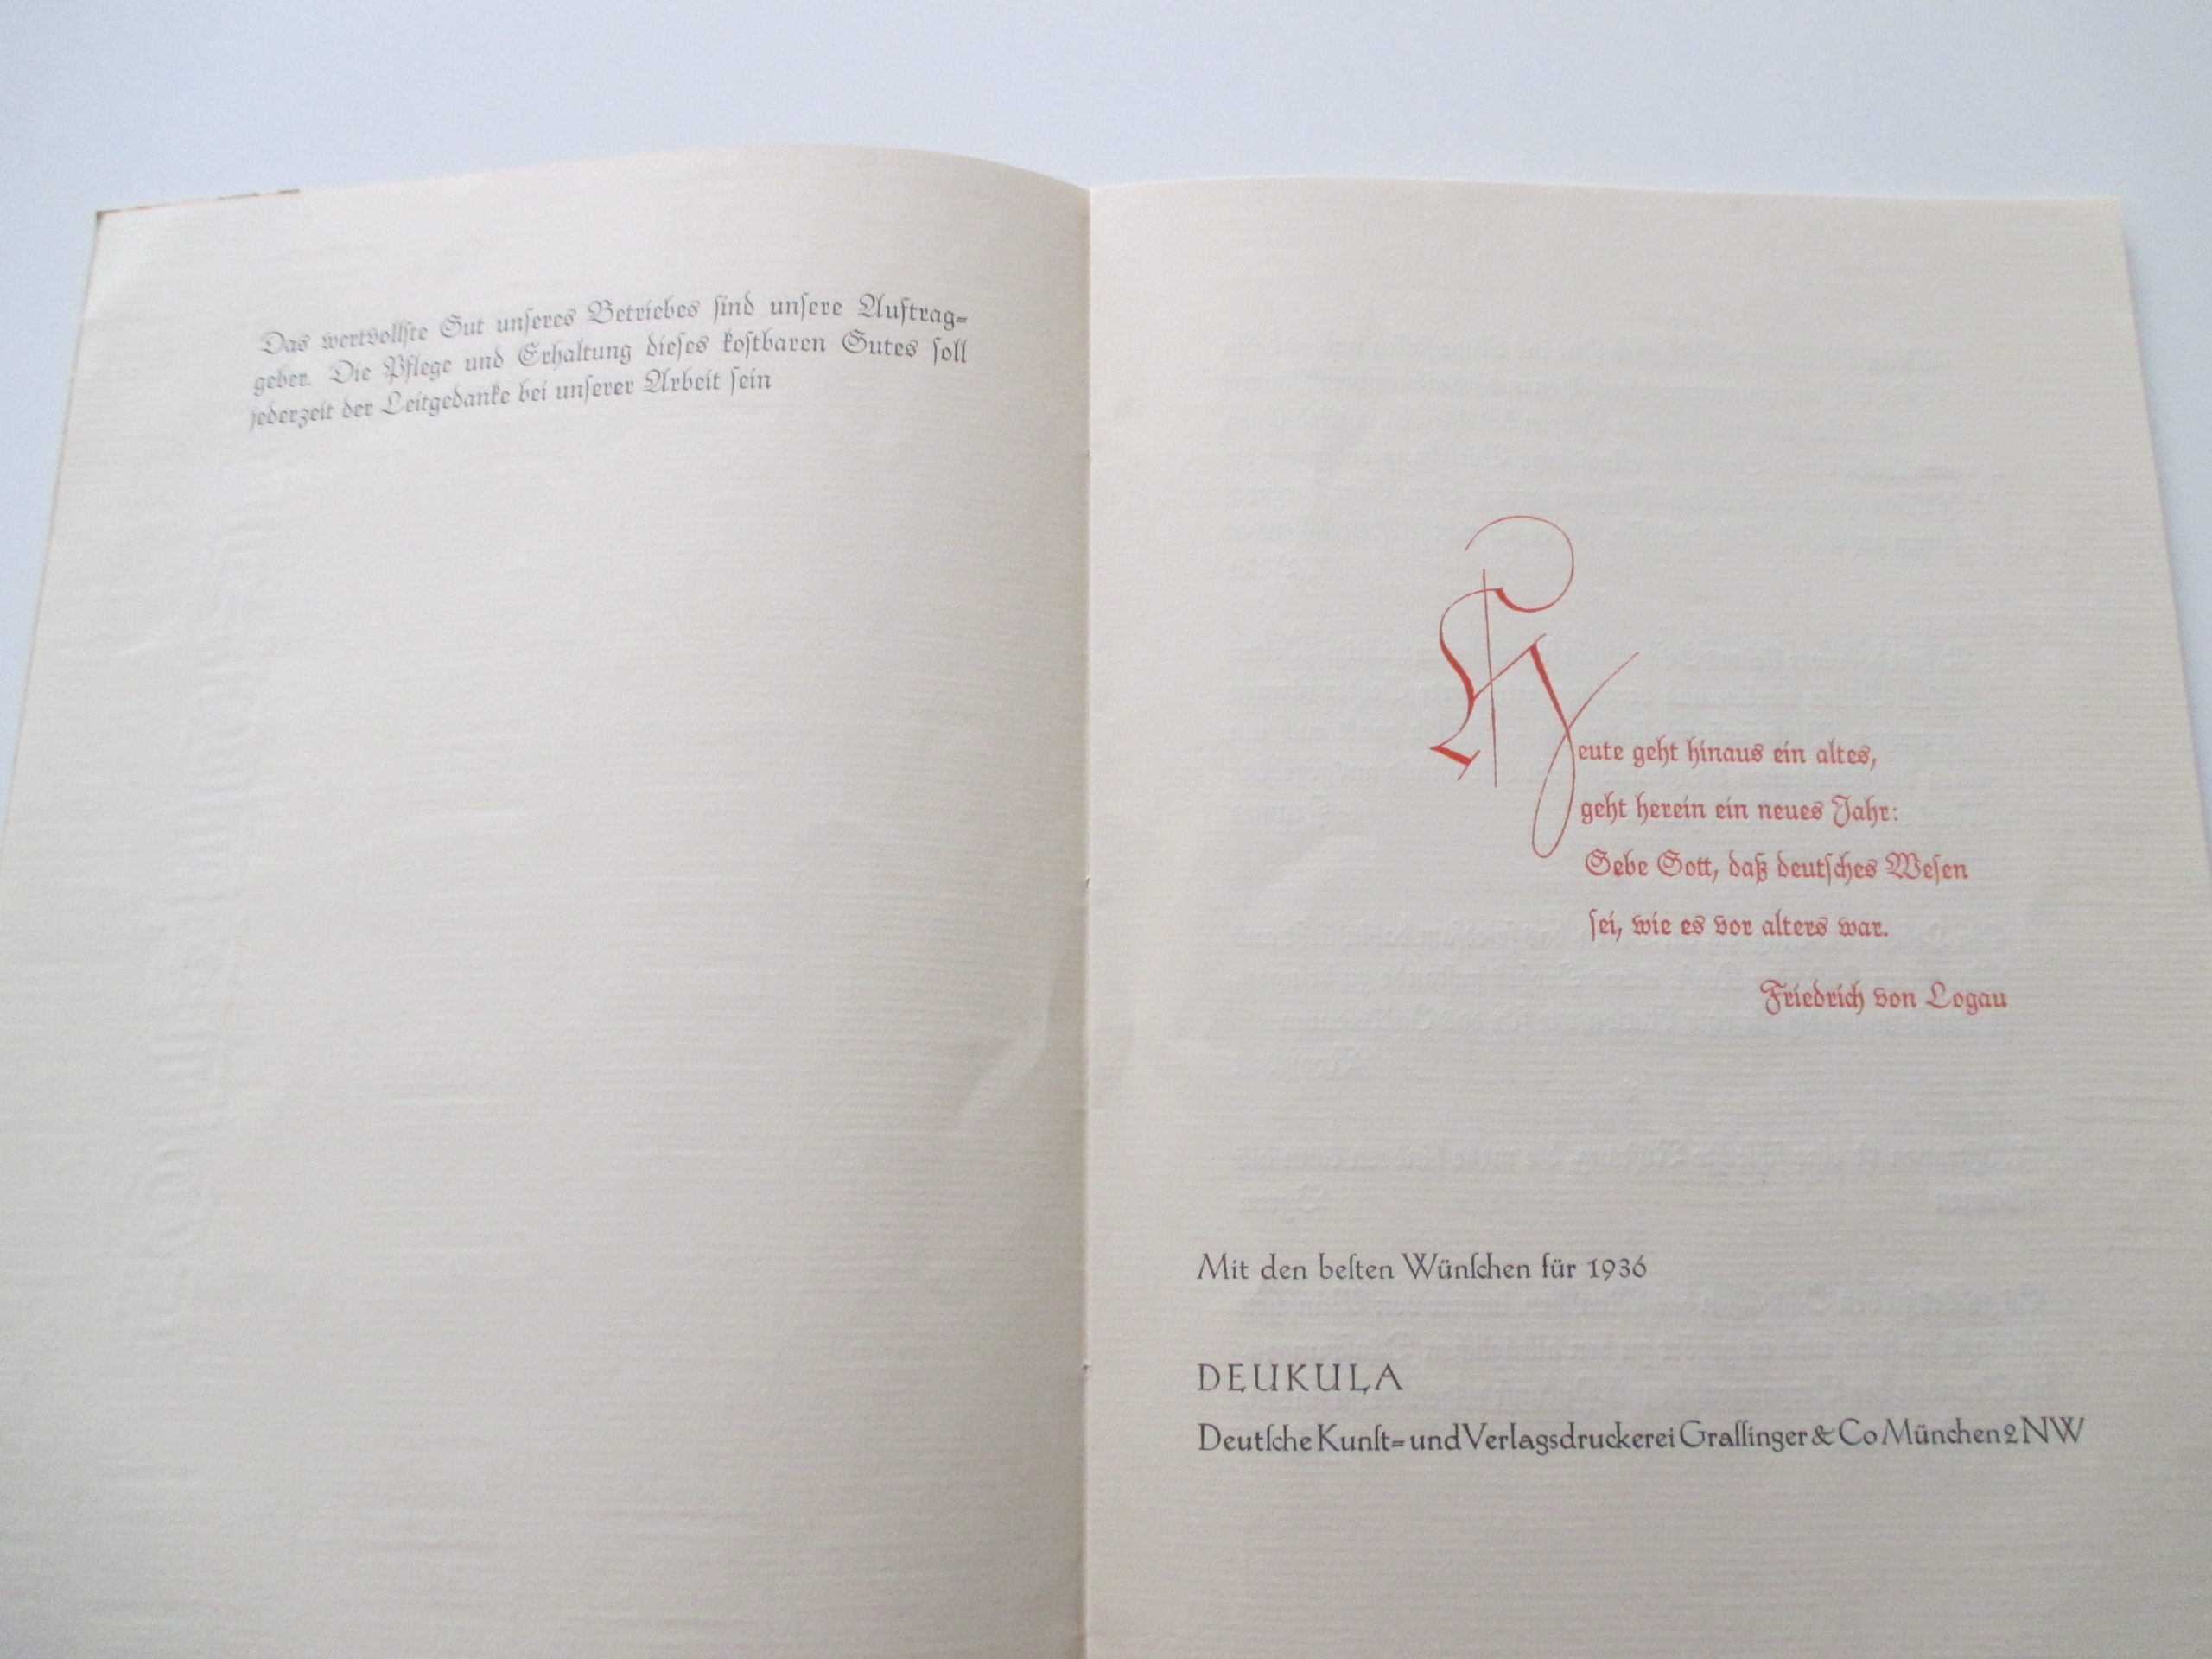 Das wertvollste Gut unseres Betriebes sind unsere Auftrag-
geber. Die Pflege und Erhaltung dieses kostbaren Gutes soll
jederzeit der Leitgedanke bei unserer Arbeit sein
Heute geht hinaus ein altes,
geht herein ein neues Jahr:
Gebe Gott, daß deutsches Wesen
sei, wie es vor alters war.
Friedrich von Logau
Mit den besten Wünschen für 1936
DEUKULA
Deutsche Kunst- und Verlagsdruckerei Grassinger & Co München 2 NW